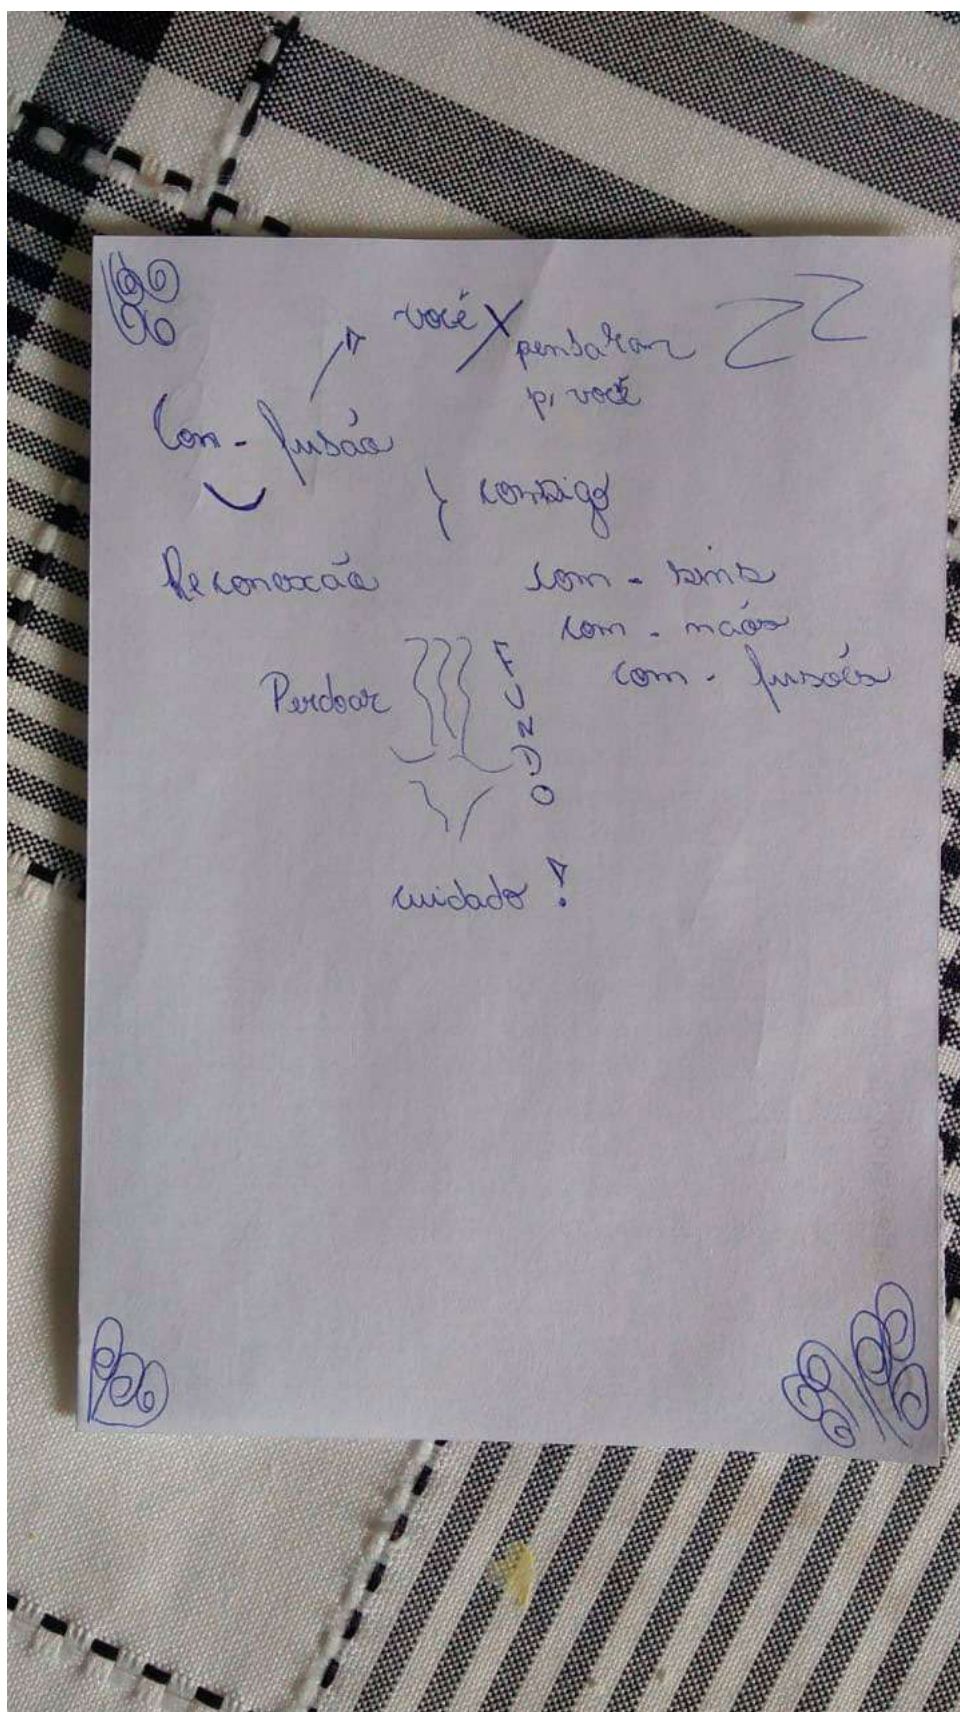 você X pensaram
p/ você
Con-fusão
} consigo
Reconexão
com - sins
com - nãos
com - fusões
Perdoar
FUNDO
cuidado !